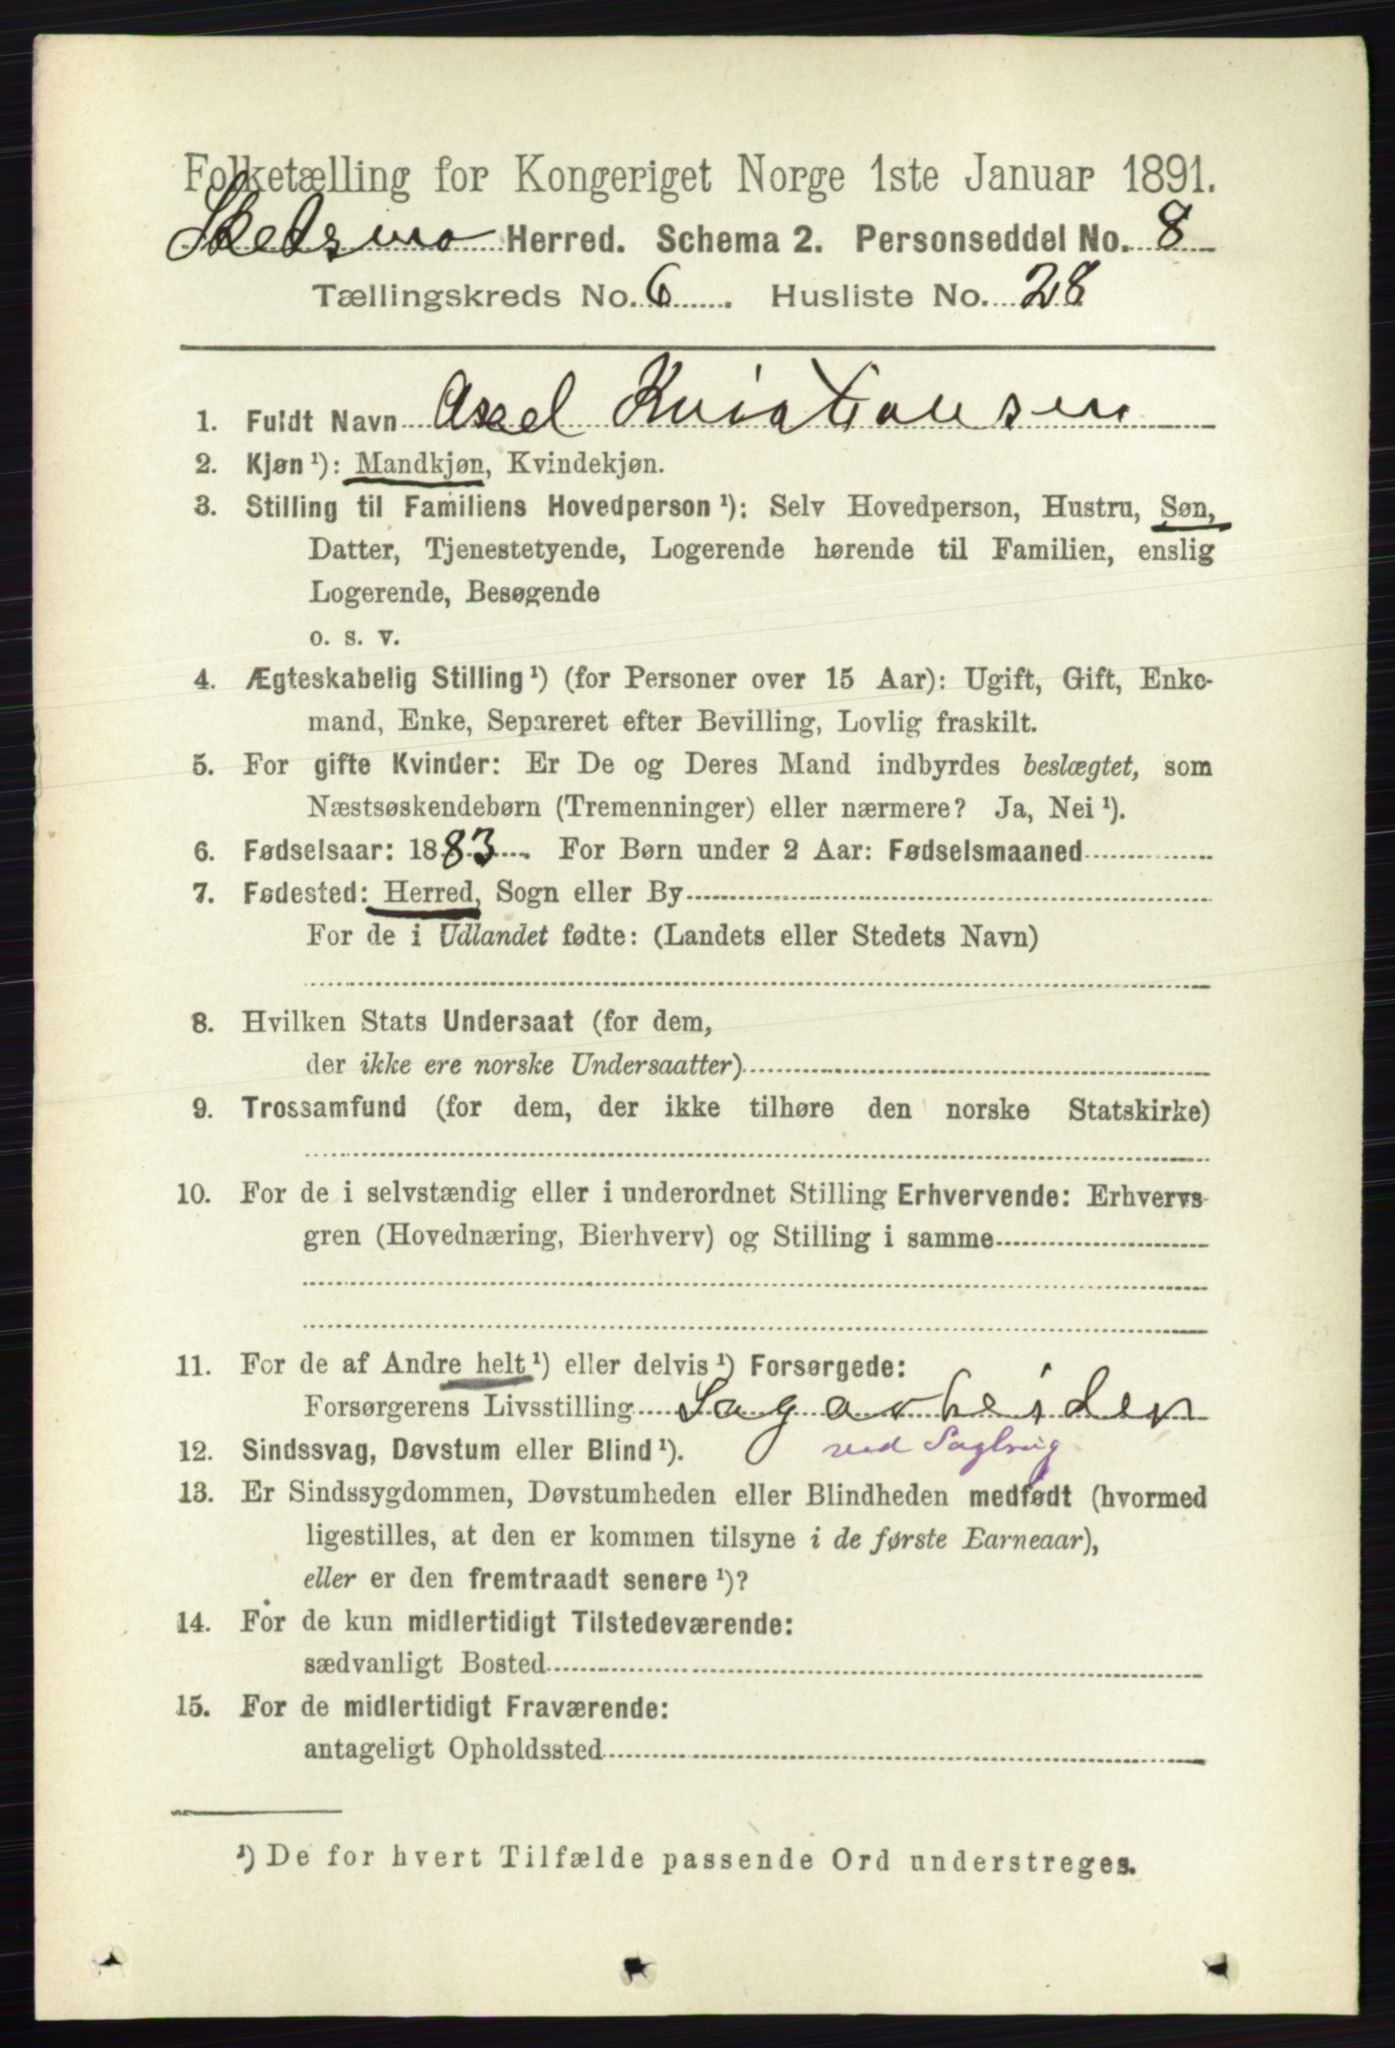 Folketælling for Kongeriget Norge 1ste Januar 1891.
Skedsmo Herred. Schema 2. Personseddel No. 8
Tællingskreds No. 6. Husliste No. 28
1. Fuldt Navn Axel Kristiansen
2. Kjøn¹): Mandkjøn, Kvindekjøn.
3. Stilling til Familiens Hovedperson¹): Selv Hovedperson, Hustru, Søn,
Datter, Tjenestetyende, Logerende hørende til Familien, enslig
Logerende, Besøgende
o. s. v.
4. Ægteskabelig Stilling¹) (for Personer over 15 Aar): Ugift, Gift, Enke-
mand, Enke, Separeret efter Bevilling, Lovlig fraskilt.
5. For gifte Kvinder: Er De og Deres Mand indbyrdes beslægtet, som
Næstsøskendebørn (Tremenninger) eller nærmere? Ja, Nei¹).
6. Fødselsaar: 1883. For Børn under 2 Aar: Fødselsmaaned
7. Fødested: Herred, Sogn eller By
For de i Udlandet fødte: (Landets eller Stedets Navn)
8. Hvilken Stats Undersaat (for dem,
der ikke ere norske Undersaatter)
9. Trossamfund (for dem, der ikke tilhøre den norske Statskirke)
10. For de i selvstændig eller i underordnet Stilling Erhvervende: Erhvervs-
gren (Hovednæring, Bierhverv) og Stilling i samme
11. For de af Andre helt¹) eller delvis¹) Forsørgede:
Forsørgerens Livsstilling Sagarbeider
ved Sagbrug
12. Sindssvag, Døvstum eller Blind¹).
13. Er Sindssygdommen, Døvstumheden eller Blindheden medfødt (hvormed
ligestilles, at den er kommen tilsyne i de første Barneaar),
eller er den fremtraadt senere¹)?
14. For de kun midlertidigt Tilstedeværende:
sædvanligt Bosted
15. For de midlertidigt Fraværende:
antageligt Opholdssted
¹) De for hvert Tilfælde passende Ord understreges.